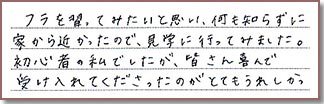 フラを習ってみたいと思い、何も知らずに
家から近かったので、見学に行ってみました。
初心者の私でしたが、皆さん喜んで
受け入れてくださったのがとてもうれしかっ